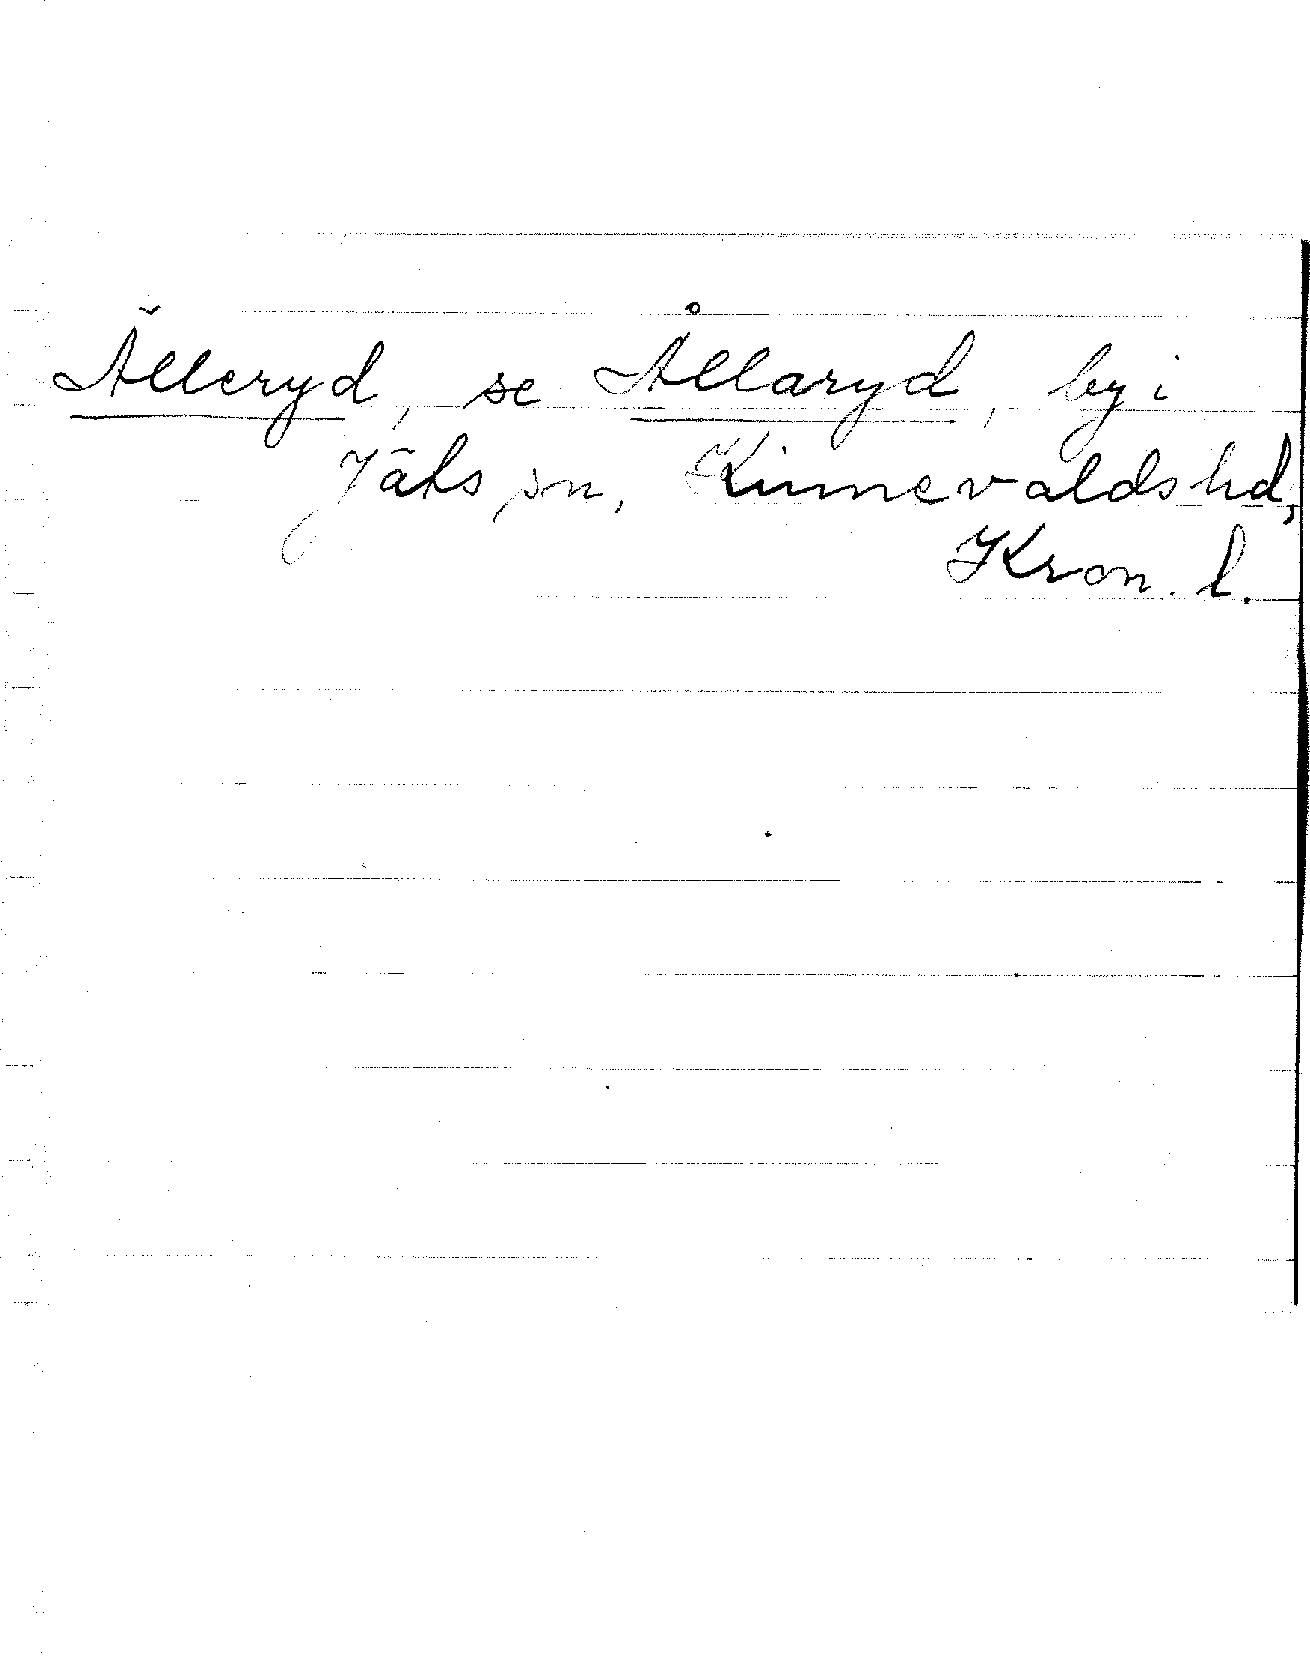 Älleryd, se Ållaryd, by i
Jäts sn, Kinnevaldshd,
Kron. l.